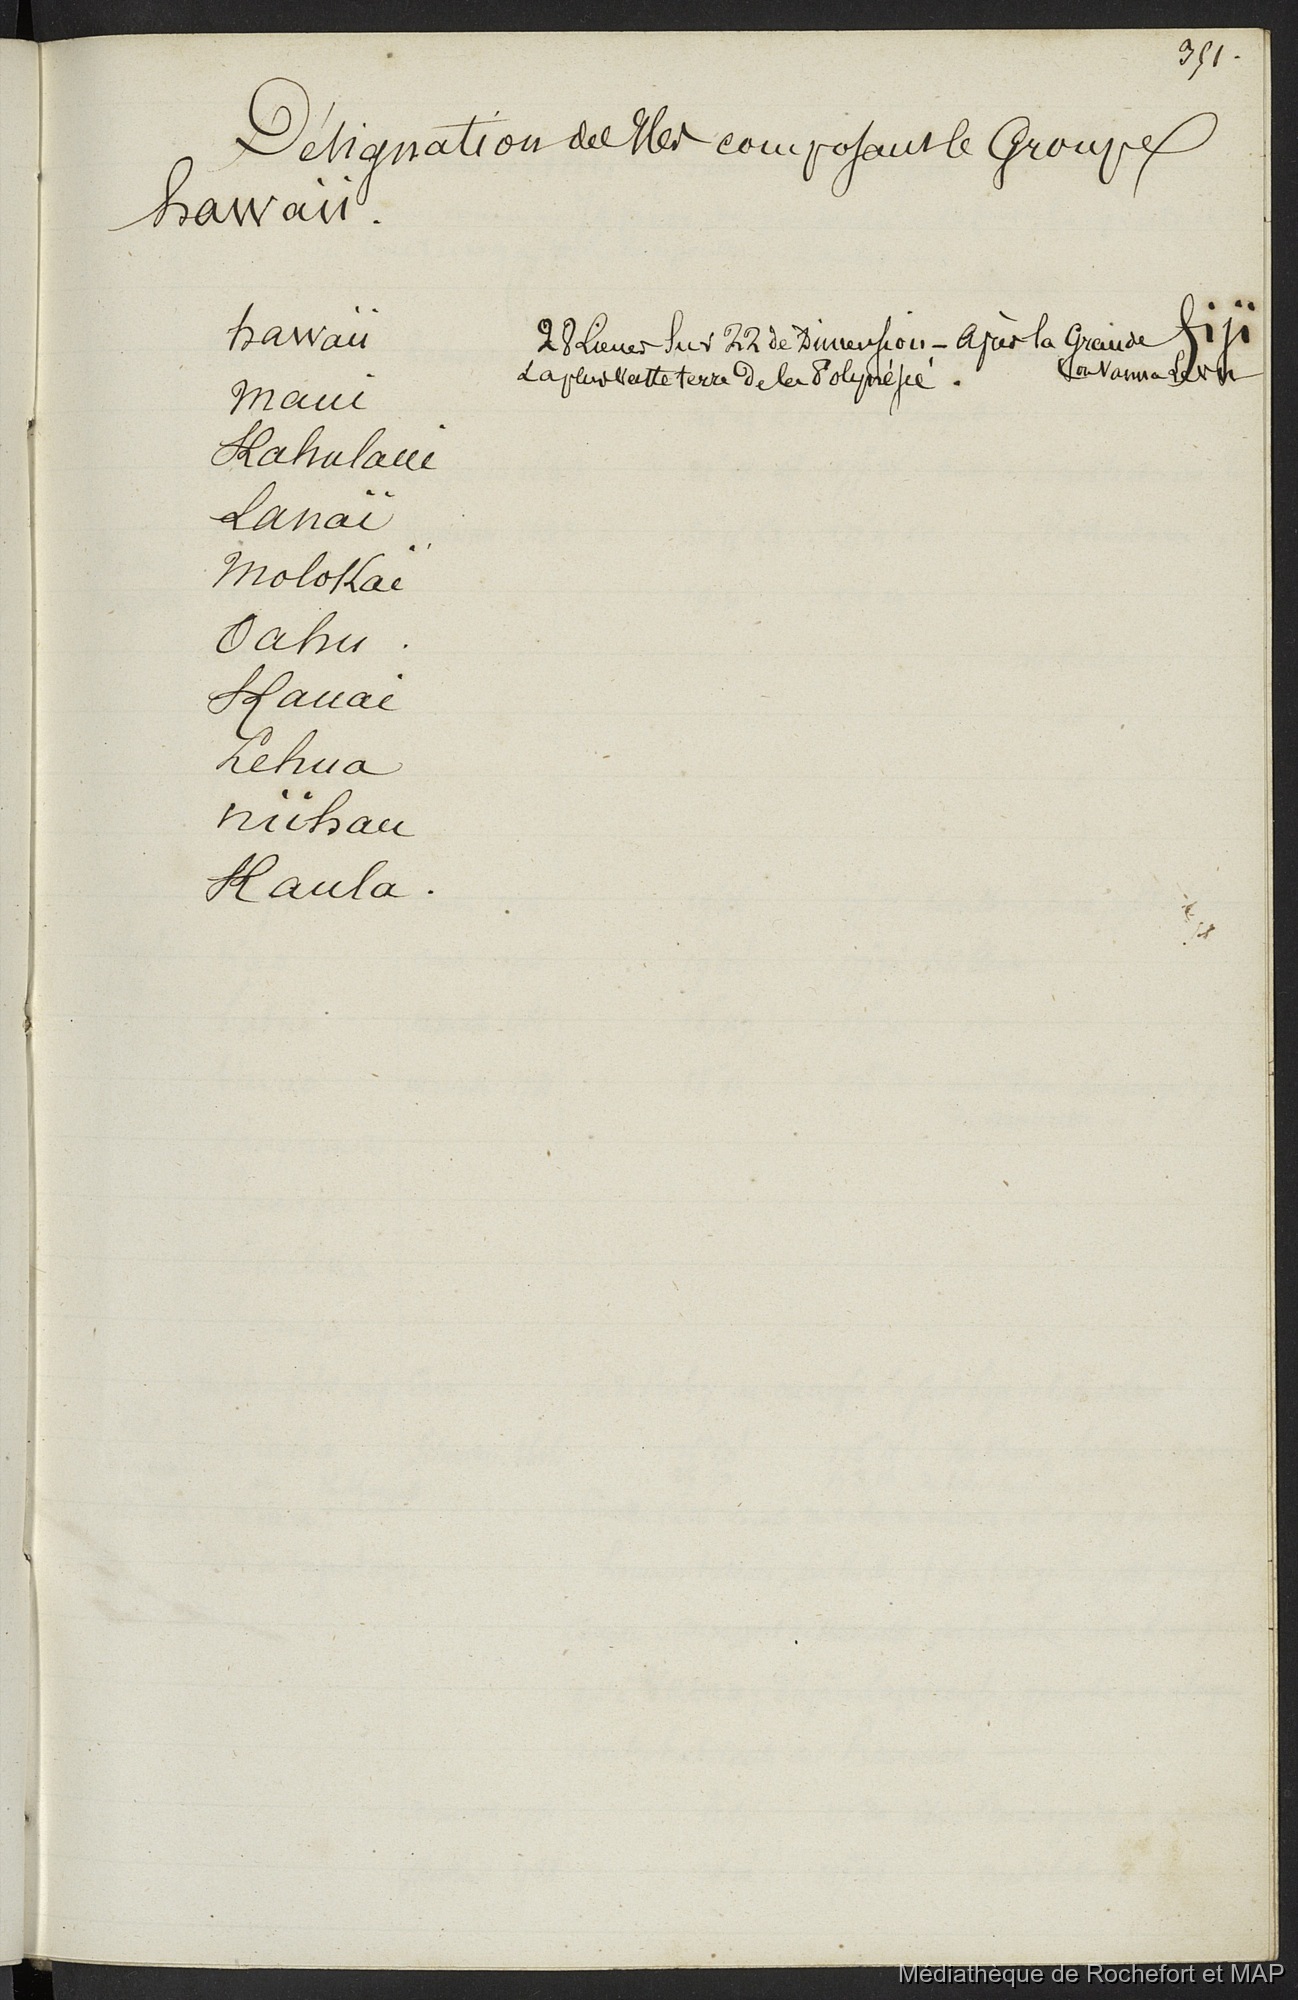 351.
Désignation des Iles composant le Groupe
hawaii.
hawaii 28 Lieues sur 22 de Dimension – après la Grande fiji
La plus vaste terre de la Polynésie. (ou Vanua Levu
Maui
Kahulaui
Lanaï
Molokaï
Oahu.
Kauai
Lehua
niihau
Kaula.
Médiathèque de Rochefort et MAP